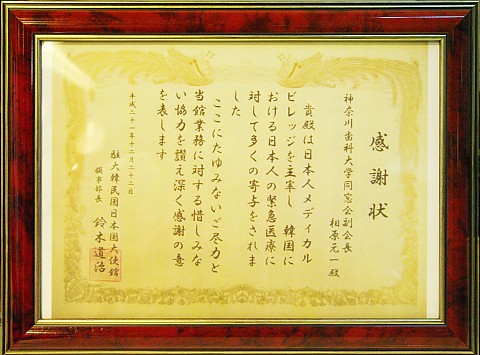 感謝状
神奈川歯科大学同窓会副会長
相原元一殿
貴殿は日本人メディカル
ビレッジを主宰し 韓国に
おける日本人の緊急医療に
対して多くの寄与をされま
した
ここにたゆみないご尽力と
当館業務に対する惜しみな
い協力を讃え深く感謝の意
を表します
平成二十一年十二月二十二日
駐大韓民国日本国大使館
領事部長 鈴木道治